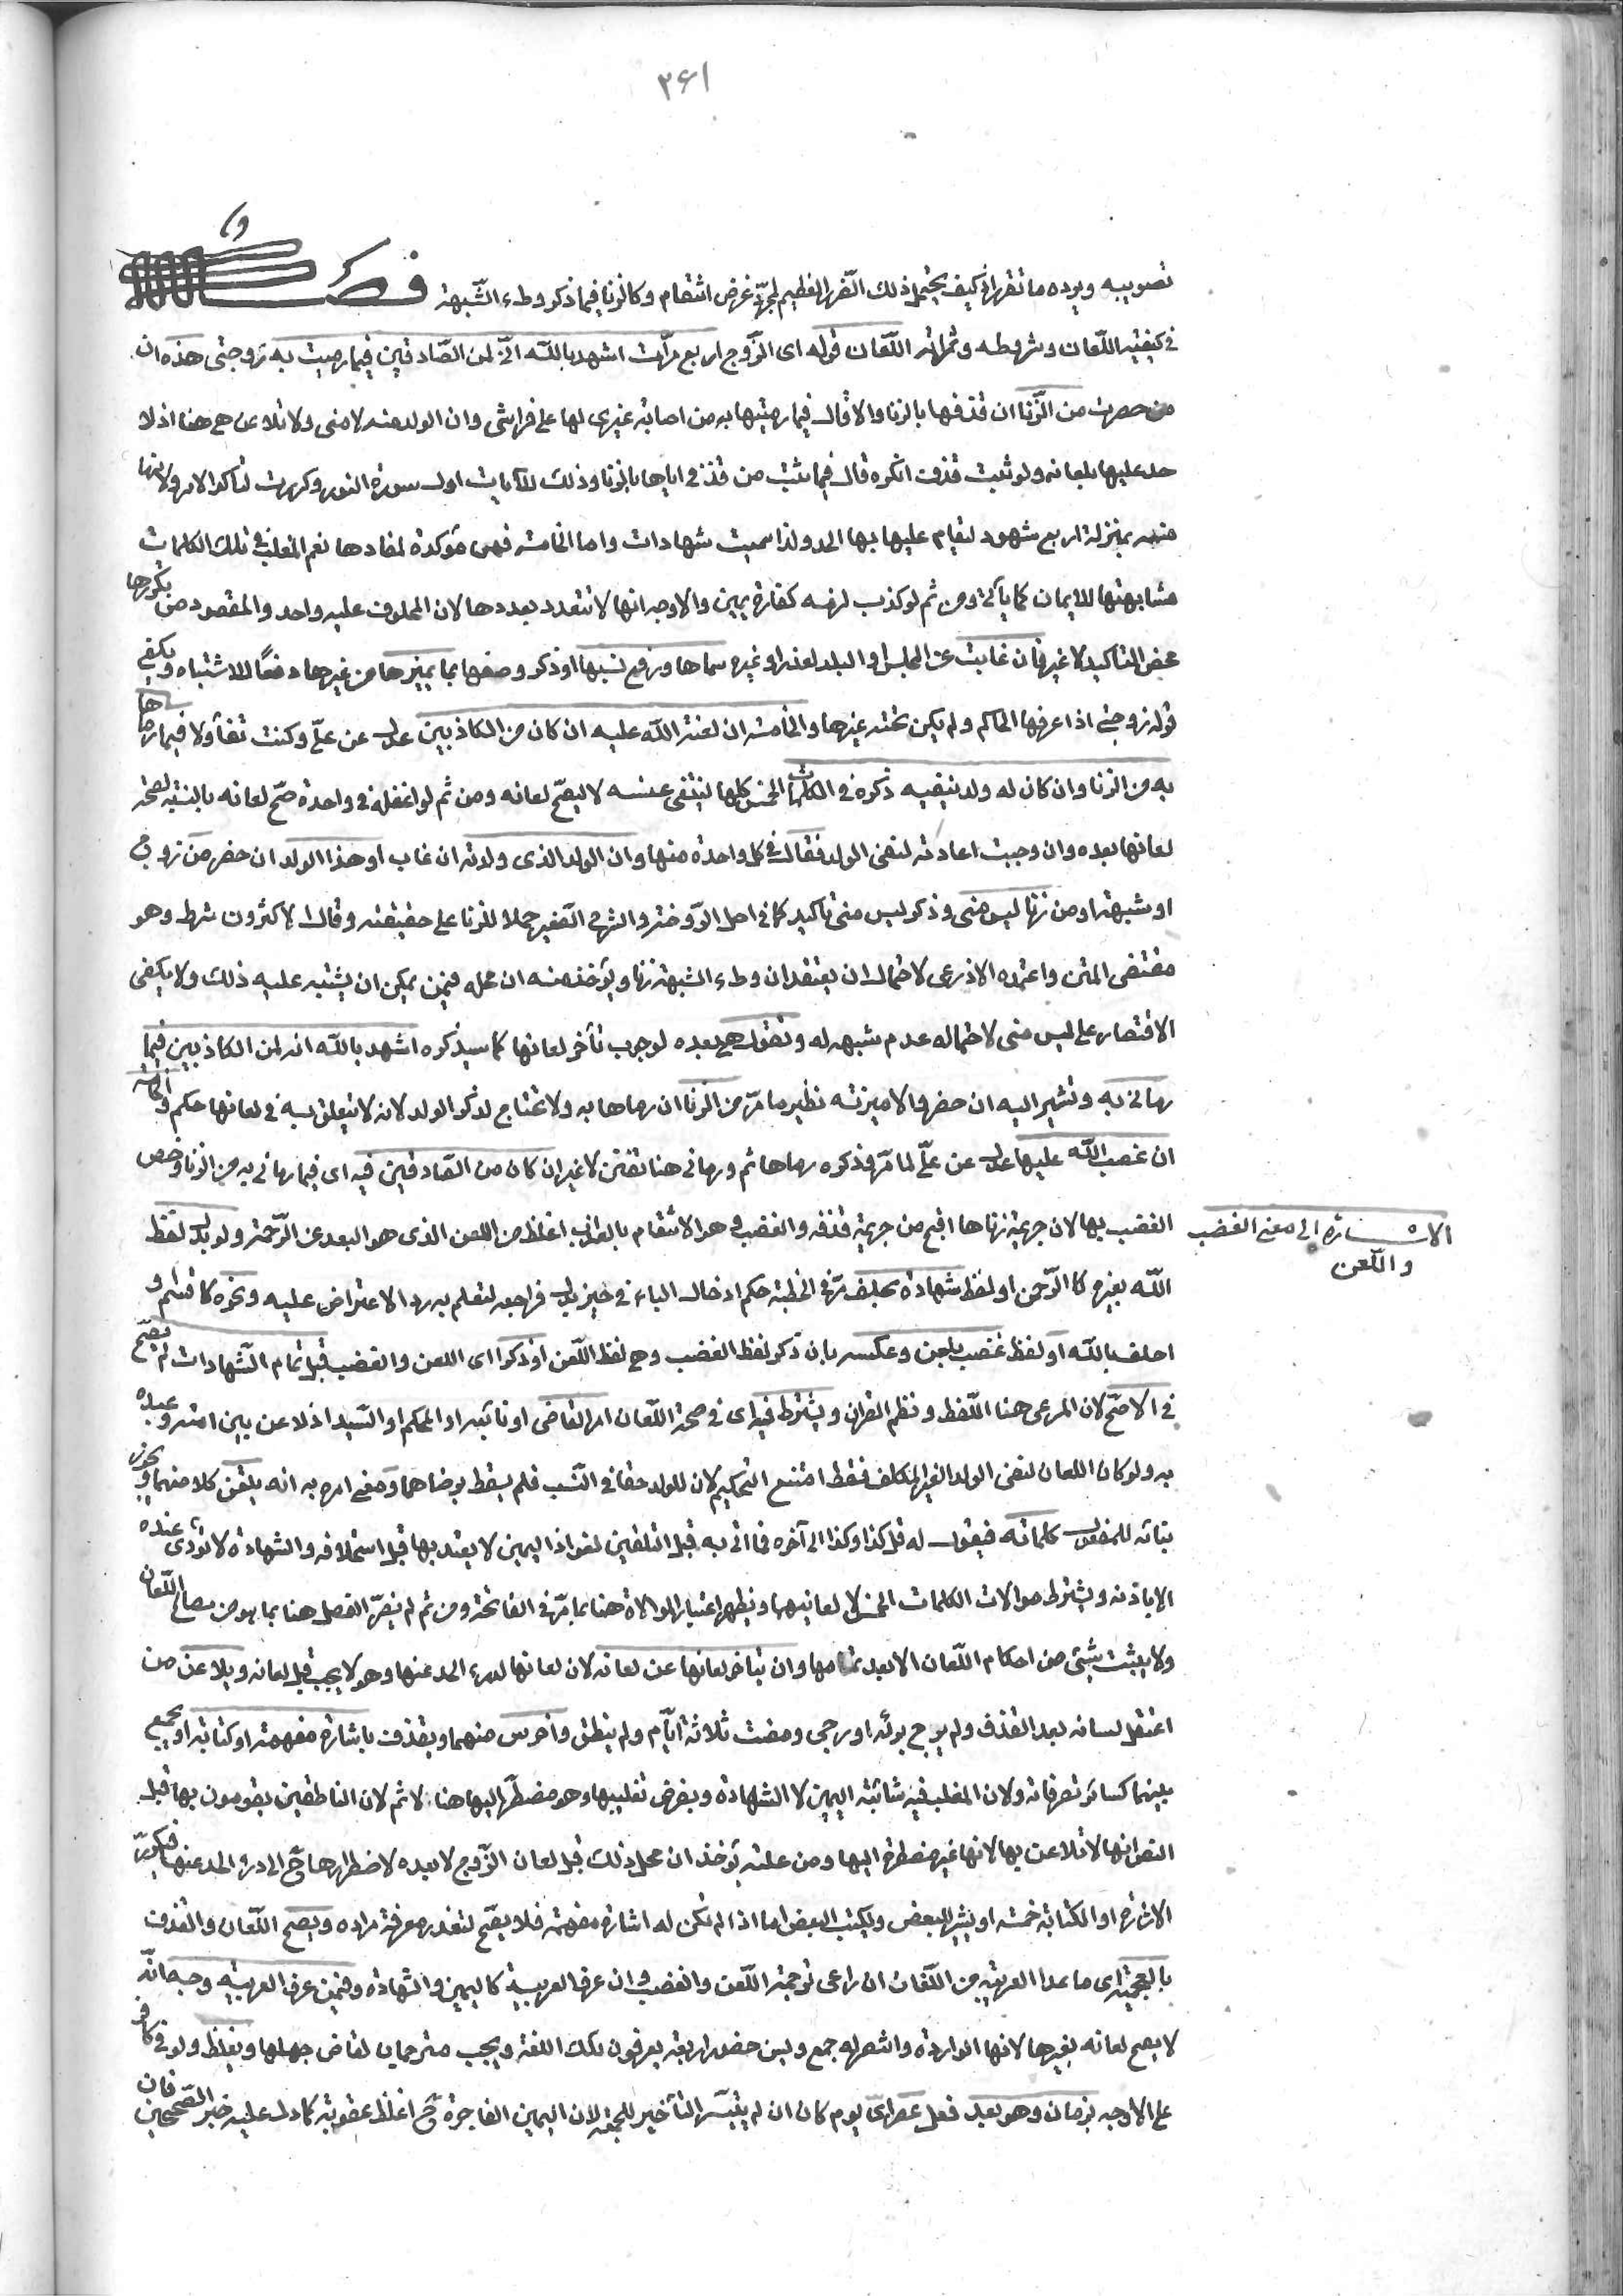 ٢٦١
تصويبه ويرده ما تقرر اذ كيف يحتمل ذلك الضرر العظيم لمجرد غرض انتقام وكالزنا فيما ذكر وطء الشبهة فصل
في كيفية اللعان وشروطه وثمراته اللعان قوله اى الزوج اربع مرات اشهد بالله انى لمن الصادقين فيما رميت به زوجتى هذه ان
حضرت من الزنا ان قذفها بالزنا والا قال فيما رميتها به من اصابة غيرى لها على فراشى وان الولد منه لا منى ولا تلاعن هى هنا اذ لا
حد عليها بلعانه ولو ثبت قذف انكره قال فيما ثبت من قذفى اياها بالزنا وذلك للآيات اول سورة النور وكررت لتأكد الامر ولانها
منه بمنزلة اربع شهود ليقام عليها بها الحد ولذا سميت شهادات واما الخامسة فهى مؤكدة لمفادها نعم المغلب في تلك الكلمات
مشابهتها للايمان كما يأتى ومن ثم لو كذب لزمه كفارة يمين والاوجه انها لا تتعدد بعددها لان المحلوف عليه واحد والمقصود من تكررها
محض التاكيد لا غير فان غابت عن المجلس او البلد لعذر او غيره سماها ورفع نسبها او ذكر وصفها بما يميزها من غيرها دفعاً للاشتباه ويكفى
قوله زوجتى اذا عرفها الحاكم ولم يكن تحته غيرها والخامسة ان لعنة الله عليه ان كان من الكاذبين عدل عن علىّ وكنت تفاؤلا فيما رماها
به من الزنا وان كان له ولد ينفيه ذكره في الكلمات الخمس كلها لينتفى عنه لا ليصح لعانه ومن ثم لو اغفله في واحدة صح لعانه بالنسبة لصحة
لعانها بعده وان وجبت اعادته لنفى الولد فقال في كل واحدة منها وان الولد الذى ولدته ان غاب او هذا الولد ان حضر من زوج
او شبهة او من زنا ليس منى وذكر ليس منى تأكيد كما في اصل الروضة والشرح الصغير حملا للزنا على حقيقته وقال الاكثرون شرط وهو
مقتضى المتن واعتمده الاذرعى لاحتمال ان يعتقد ان وطء الشبهة زنا ويؤخذ منه ان محله فيمن يمكن ان يشتبه عليه ذلك ولا يكفى
الاقتصار على ليس منى لاحتماله عدم شبهه له وتقول هى بعده لوجوب تأخر لعانها كما سيذكره اشهد بالله انه لمن الكاذبين فيما
رمانى به وتشير اليه ان حضر والا ميزته نظير ما مرّ من الزنا ان رماها به ولا تحتاج لذكر الولد لانه لا يتعلق به في لعانها حكم والخامسة
ان غضب الله عليها عدل عن علىّ لما مرّ وذكره رماها ثم ورمانى هنا تفنن لا غير ان كان من الصادقين فيه اى فيما رمانى به من الزنا وخص
الغضب بها لان جريمة زناها اقبح من جريمة قذفه والغضب وهو الانتقام بالعذاب اغلظ من اللعن الذى هو البعد عن الرحمة ولو بدل لفظ
الاشارة الى معنى الغضب
واللعن
الله بغيره كالرحمن او لفظ شهادة بحلف مرّ في الخطبة حكم ادخال الباء في حيز بدل فراجعه لتعلم به رد الاعتراض عليه ونحوه كاقسم او
احلف بالله او لفظ غضب بلعن وعكسه بان ذكر لفظ الغضب وهى لفظ اللعن او ذكرا اى اللعن والغضب قبل تمام الشهادات لم يصح
في الاصح لان المرعى هنا اللفظ ونظم القران ويشترط فيه اى في صحة اللعان امر القاضى او نائبه او المحكم او السيد اذ لاعن بين امته وعبده
به ولو كان اللعان لنفى الولد الغير المكلف فقط امتنع التحكيم لان للولد حقا في النسب فلم يسقط برضاهما ومعنى امره به انه يلقن كلا منهما ويجوز
بنائه للمفعول كلماته فيقول له قل كذا وكذا الى آخره فما اتى به قبل التلقين لغو اذ اليمين لا يعتد بها قبل استحلافه والشهادة لا تؤدى عنده
الا باذنه ويشترط موالات الكلمات الخمس لا لعانيهما ويظهر اعتبار الموالاة هنا بما مرّ في الفاتحة ومن ثم لم يضرّ الفصل هنا بما هو من مصالح اللعان
ولا يثبت شئ من احكام اللعان الا بعد تمامها وان يتأخر لعانها عن لعانه لان لعانها لدرء الحد عنها وهو لا يجب قبل لعانه ويلاعن من
اعتقل لسانه بعد القذف ولم يرج برئه او رجى ومضت ثلاثة ايام ولم ينطق واخرس منهما ويقذف باشارة مفهمة او كتابة او يجمع
بينهما كسائر تصرفاته ولان المغلب فيه شائبة اليمين لا الشهادة وبفرض تغليبها وهو مضطر اليها هنا لا ثم لان الناطقين يقومون بها قيل
النص انها لا تلاعن بها لانها غير مضطرة اليها ومن علته يؤخذ ان محل ذلك قبل لعان الزوج لا بعده لاضطرارها ح الى درء الحد عنها فيكرر
الاشارة او الكتابة خمسة او يشير للبعض ويكتب البعض اما اذا لم تكن له اشارة مفهمة فلا يصح لتعذر معرفة مراده ويصح اللعان والقذف
بالعجمية اى ما عدا العربية من اللغات ان راعى ترجمة اللعن والغضب وان عرف العربية كاليمين والشهادة وفيمن عرف العربية وجه انه
لا يصح لعانه بغيرها لانها الواردة وانتصر له جمع وليس حضور اربعة يعرفون تلك اللغة ويجب مترجمان لقاض جهلها ويغلظ ولو في كافر
على الاوجه بزمان وهو بعد فعل عصر اى يوم كان ان لم يتيسر التأخير للجمعة لان اليمين الفاجرة ح اغلظ عقوبة كما دل عليه خبر الصحيحين فان